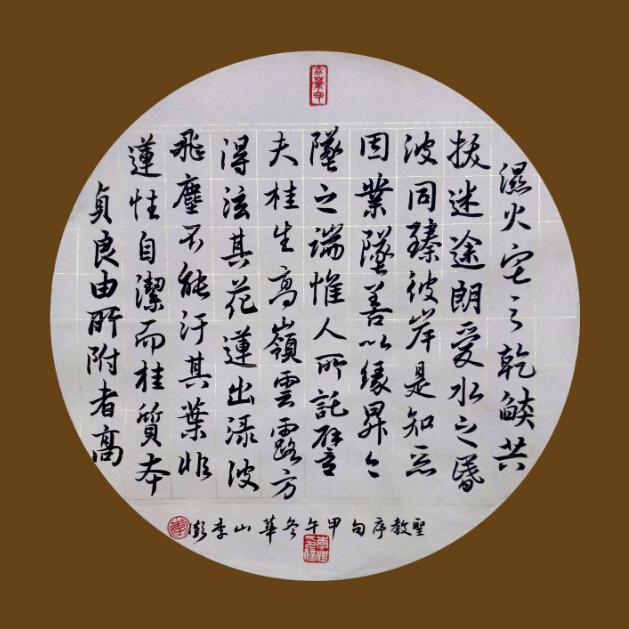 濕火宅之乾燄共
拔迷途朗愛水之昏
波同臻彼岸是知惡
因業墜善以緣昇々
墜之端惟人所託譬
夫桂生高嶺雲露方
得泫其花蓮出淥波
飛塵不能汙其葉非
蓮性自潔而桂質本
貞良由所附者高
聖教序句甲午冬華山李澎